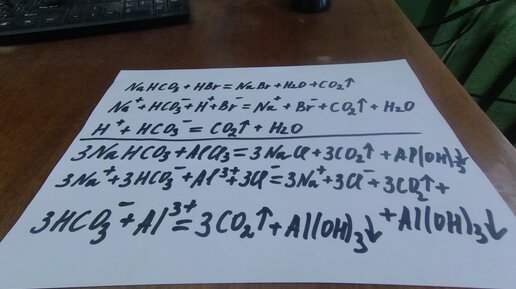 NaHCO₃ + HBr = NaBr + H₂O + CO₂↑
Na⁺ + HCO₃⁻ + H⁺ + Br⁻ = Na⁺ + Br⁻ + CO₂↑ + H₂O
H⁺ + HCO₃⁻ = CO₂↑ + H₂O
3NaHCO₃ + AlCl₃ = 3NaCl + 3CO₂↑ + Al(OH)₃↓
3Na⁺ + 3HCO₃⁻ + Al³⁺ + 3Cl⁻ = 3Na⁺ + 3Cl⁻ + 3CO₂↑ +
+ Al(OH)₃↓
3HCO₃⁻ + Al³⁺ = 3CO₂↑ + Al(OH)₃↓